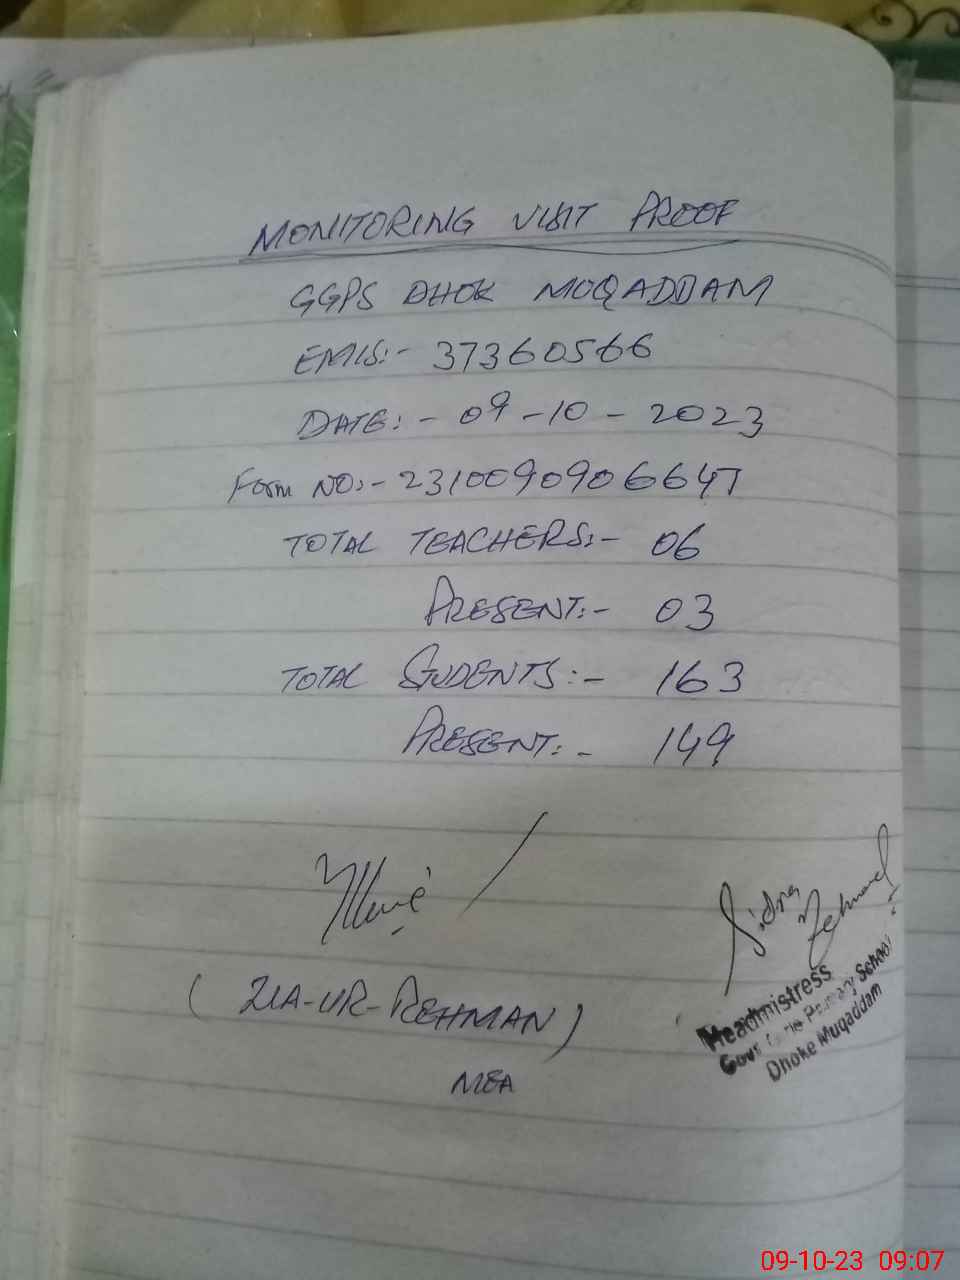 MONITORING VISIT PROOF
GGPS DHOK MUQADDAM
EMIS:- 37360566
DATE:- 09-10-2023
Form NO:- 2310090906647
TOTAL TEACHERS:- 06
PRESENT:- 03
TOTAL STUDENTS:- 163
PRESENT:- 149
Sidra Rehman
(ZIA-UR-REHMAN)
MEA
Headmistress
Govt Girls Primary School
Dhoke Muqaddam
09-10-23 09:07